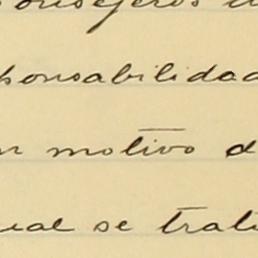 onsejeros
ponsabilidad
n motivo d
ual se trat